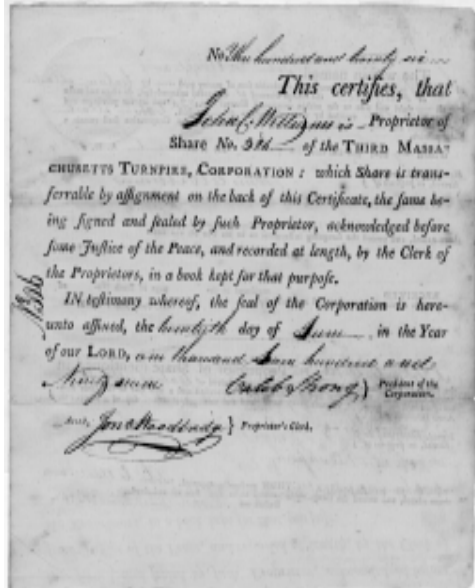 No. Three hundred and twenty six
This certifies, that
John C. Williams is Proprietor of
Share No. 326 of the THIRD MASSA-
CHUSETTS TURNPIKE, CORPORATION: which Share is trans-
ferrable by assignment on the back of this Certificate, the same be-
ing signed and sealed by such Proprietor, acknowledged before
some Justice of the Peace, and recorded at length, by the Clerk of
the Proprietors, in a book kept for that purpose.
IN testimony whereof, the seal of the Corporation is here-
unto affixed, the twentyth day of June in the Year
of our LORD, one thousand seven hundred and
Ninety seven Caleb Strong } President of the
Corporation.
Attest, Jon. Woodbridge } Proprietor's Clerk.